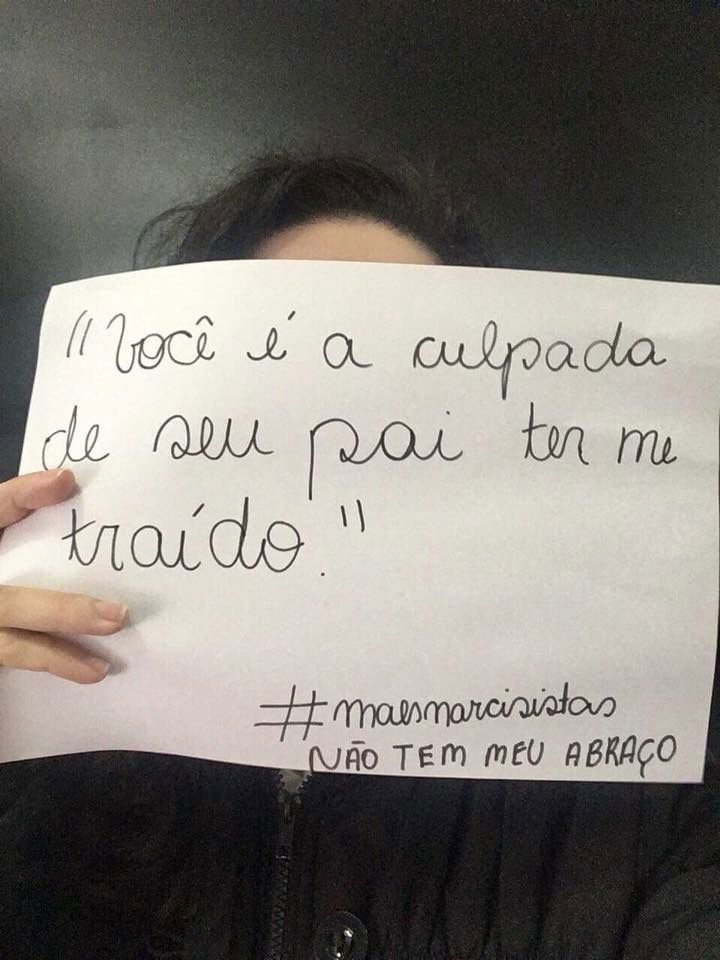 "Você é a culpada
de seu pai ter me
traído."
#maesnarcisistas
NÃO TEM MEU ABRAÇO